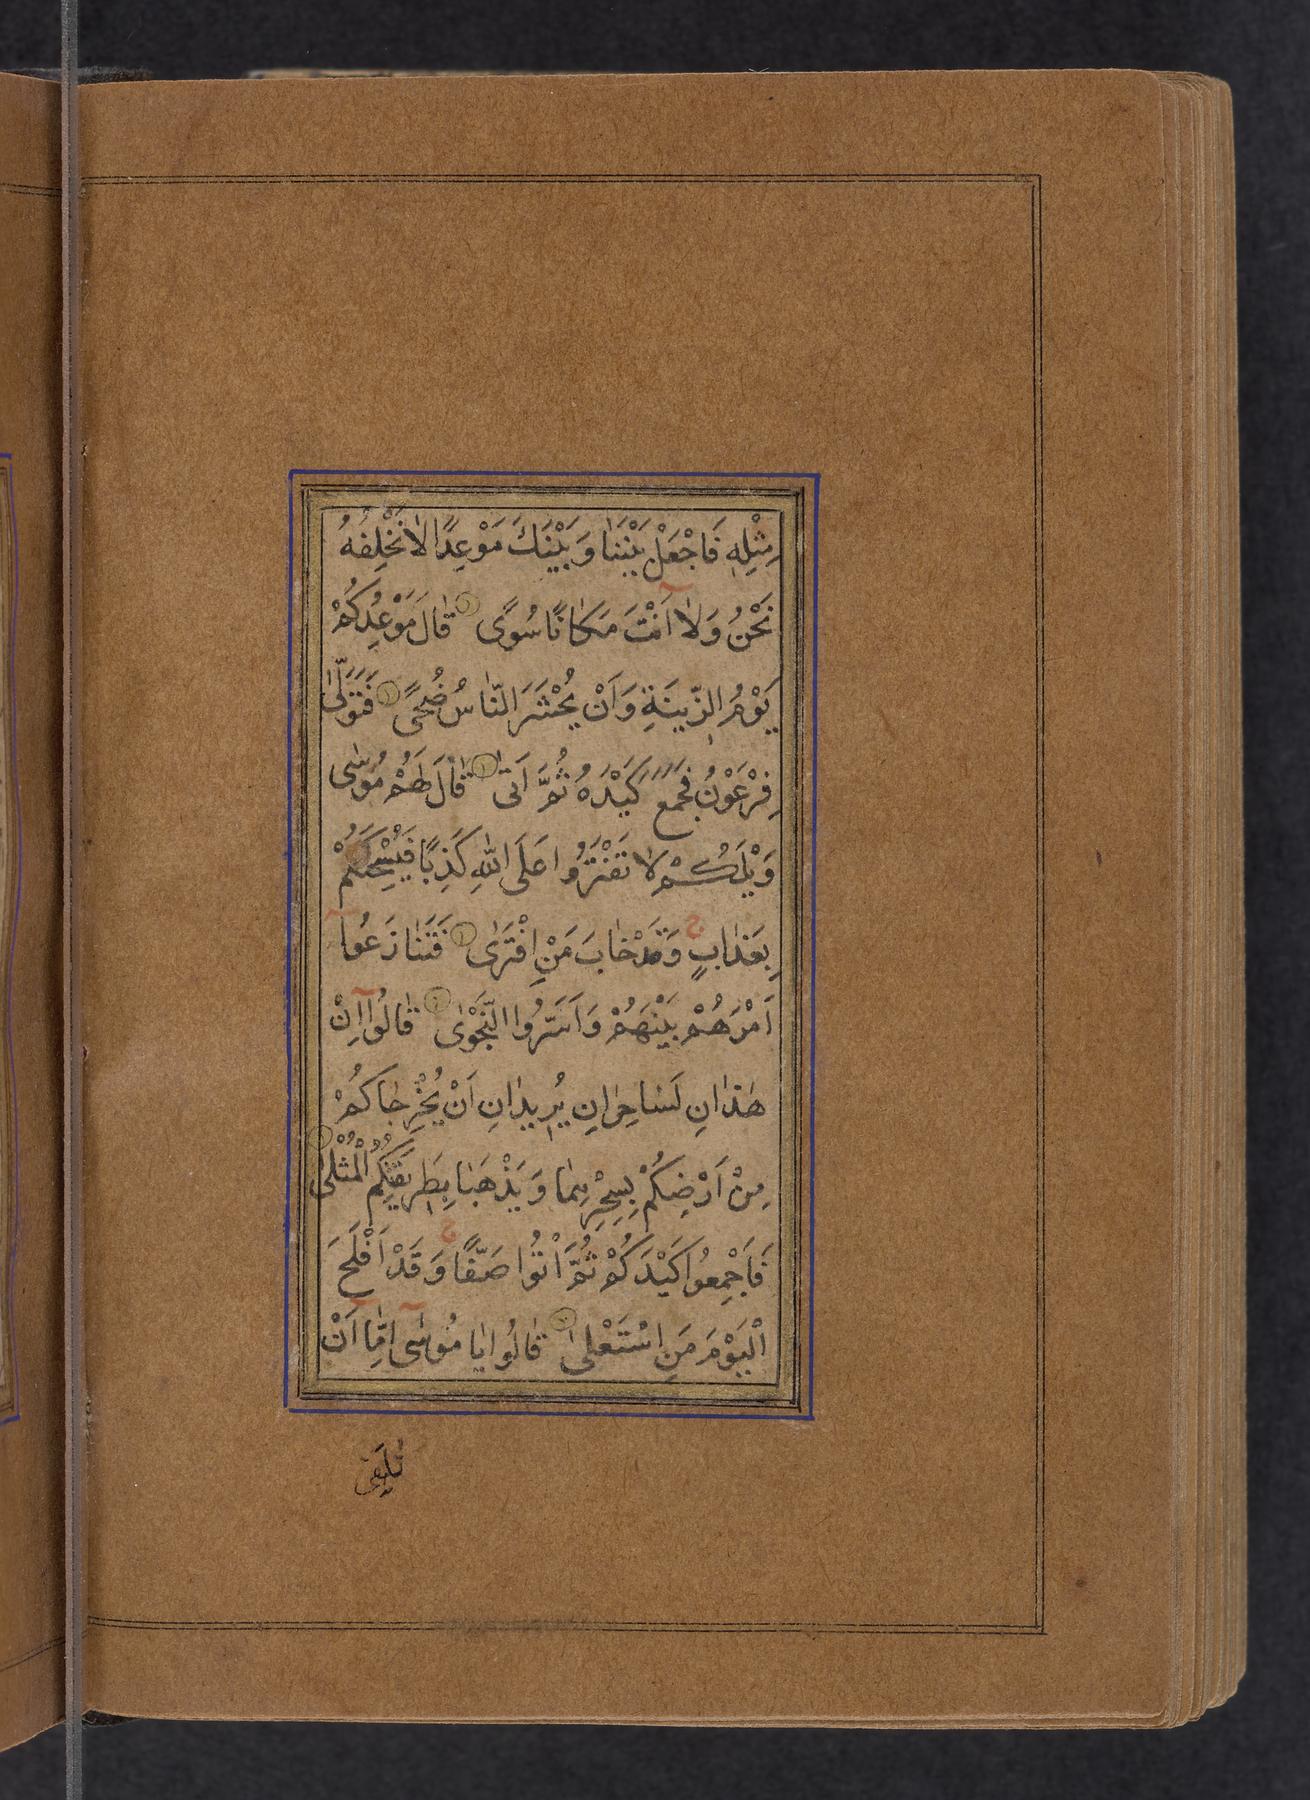 مِثْلِهٖ فَاجْعَلْ بَيْنَنٰا وَبَيْنَكَ مَوْعِدًا لٰا نُخْلِفُهُ
نَحْنُ وَلٰٓا اَنْتَ مَكٰانًا سُوًى قٰالَ مَوْعِدُكُمْ
يَوْمُ الزّٖينَةِ وَاَنْ يُحْشَرَ النّٰاسُ ضُحًى فَتَوَلّٰى
فِرْعَوْنُ فَجَمَعَ كَيْدَهُ ثُمَّ اَتٰى قٰالَ لَهُمْ مُوسٰى
وَيْلَكُمْ لٰا تَفْتَرُوا عَلَى اللّٰهِ كَذِبًا فَيُسْحِتَكُمْ
بِعَذٰابٍ وَقَدْ خٰابَ مَنِ افْتَرٰى فَتَنٰازَعُوٓا
اَمْرَهُمْ بَيْنَهُمْ وَاَسَرُّوا النَّجْوٰى قٰالُوٓا اِنْ
هٰذٰانِ لَسٰاحِرٰانِ يُرٖيدٰانِ اَنْ يُخْرِجٰاكُمْ
مِنْ اَرْضِكُمْ بِسِحْرِهِمٰا وَيَذْهَبٰا بِطَرٖيقَتِكُمُ الْمُثْلٰى
فَاَجْمِعُوا كَيْدَكُمْ ثُمَّ اْتُوا صَفًّا وَقَدْ اَفْلَحَ
الْيَوْمَ مَنِ اسْتَعْلٰى قٰالُوا يٰا مُوسٰٓى اِمّٰٓا اَنْ
تُلْقِىَ